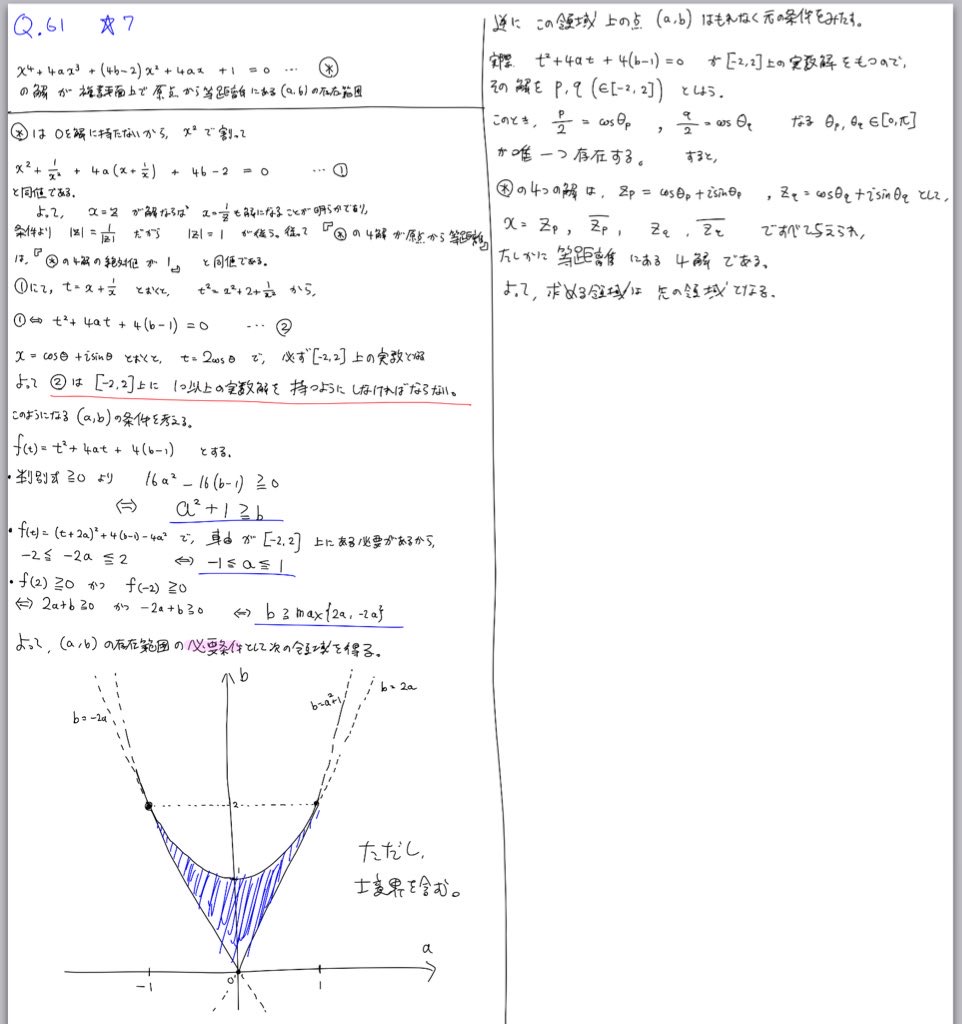 Q.61 ☆7
x⁴+4ax³+(4b-2)x²+4ax+1=0 … ✱
の解が複素平面上で原点から等距離にある(a,b)の存在範囲
✱は0を解に持たないから、x²で割って
x²+1/x²+4a(x+1/x)+4b-2=0 …①
と同値である。
よって、x=zが解ならばx=1/zも解になることが明らかであり、
条件より |z|=1/|z| だから |z|=1 が従う。従って『✱の4解が原点から等距離』
は、『✱の4解の絶対値が1』と同値である。
①にて、t=x+1/x とおくと、t²=x²+2+1/x² から、
①⇔ t²+4at+4(b-1)=0 …②
x=cosθ+isinθ とおくと、t=2cosθ で、必ず[-2,2]上の実数となる
よって②は[-2,2]上に1つ以上の実数解を持つようにしなければならない。
このようになる(a,b)の条件を考える。
f(t)=t²+4at+4(b-1) とする。
・判別式≧0より 16a²-16(b-1)≧0
⇔ a²+1≧b
・f(t)=(t+2a)²+4(b-1)-4a² で、軸が[-2,2]上にある必要があるから、
-2≦-2a≦2 ⇔ -1≦a≦1
・f(2)≧0 かつ f(-2)≧0
⇔ 2a+b≧0 かつ -2a+b≧0 ⇔ b≧max{2a,-2a}
よって、(a,b)の存在範囲の必要条件として次の領域を得る。
b
b=-2a
b=a²+1
b=2a
2
1
ただし、
境界を含む。
a
-1
0
1
逆にこの領域上の点(a,b)はもれなく元の条件をみたす。
実際 t²+4at+4(b-1)=0 が[-2,2]上の実数解をもつので、
その解をp,q(∈[-2,2])としよう。
このとき、p/2=cosθp , q/2=cosθq なる θp,θq∈[0,π]
が唯一つ存在する。 すると、
✱の4つの解は、zp=cosθp+isinθp , zq=cosθq+isinθq として、
x=zp, z̄p, zq, z̄q ですべて与えられ、
たしかに等距離にある4解である。
よって、求める領域は先の領域となる。